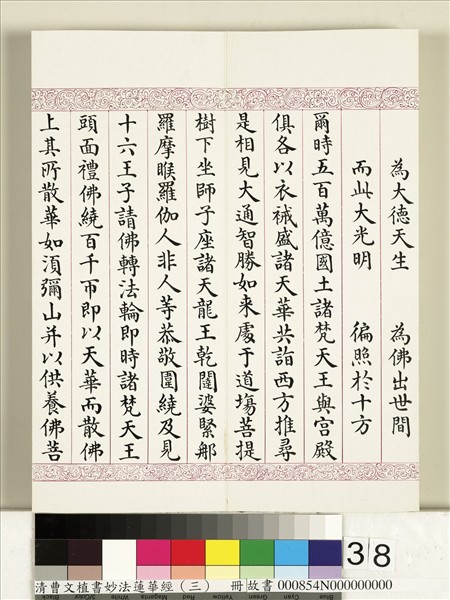 為大德天生　為佛出世間
而此大光明　徧照於十方
爾時五百萬億國土諸梵天王與宮殿
俱各以衣祴盛諸天華共詣西方推尋
是相見大通智勝如来處于道塲菩提
樹下坐師子座諸天龍王乾闥婆緊那
羅摩睺羅伽人非人等恭敬圍繞及見
十六王子請佛轉法輪即時諸梵天王
頭面禮佛繞百千帀即以天華而散佛
上其所散華如湏彌山并以供養佛菩
38
清曹文植書妙法蓮華經（三）　冊 故書 000854N000000000